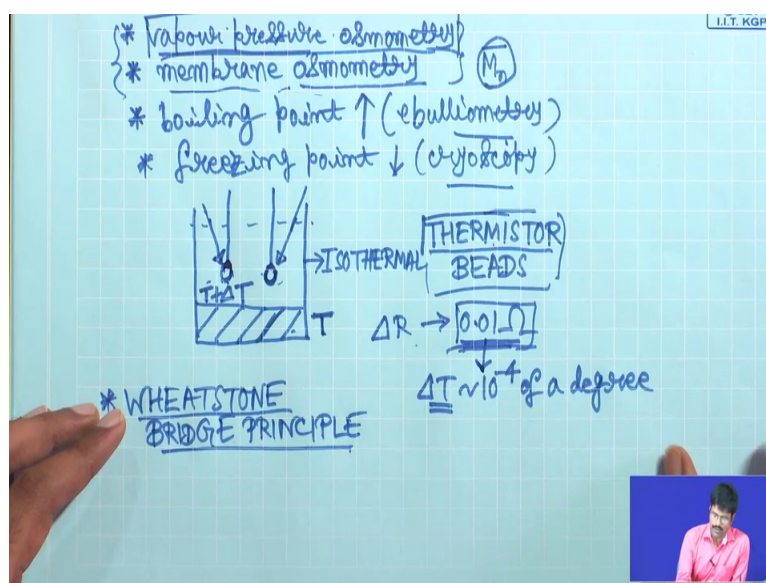 I.I.T. KGP
* vapour pressure osmometry
* membrane osmometry
Mn
* boiling point ↑ (ebulliometry)
* freezing point ↓ (cryoscopy)
→ ISOTHERMAL
THERMISTOR
BEADS
T+ΔT
T
ΔR → 0.01Ω
ΔT ~ 10⁻⁴ of a degree
* WHEATSTONE
BRIDGE PRINCIPLE